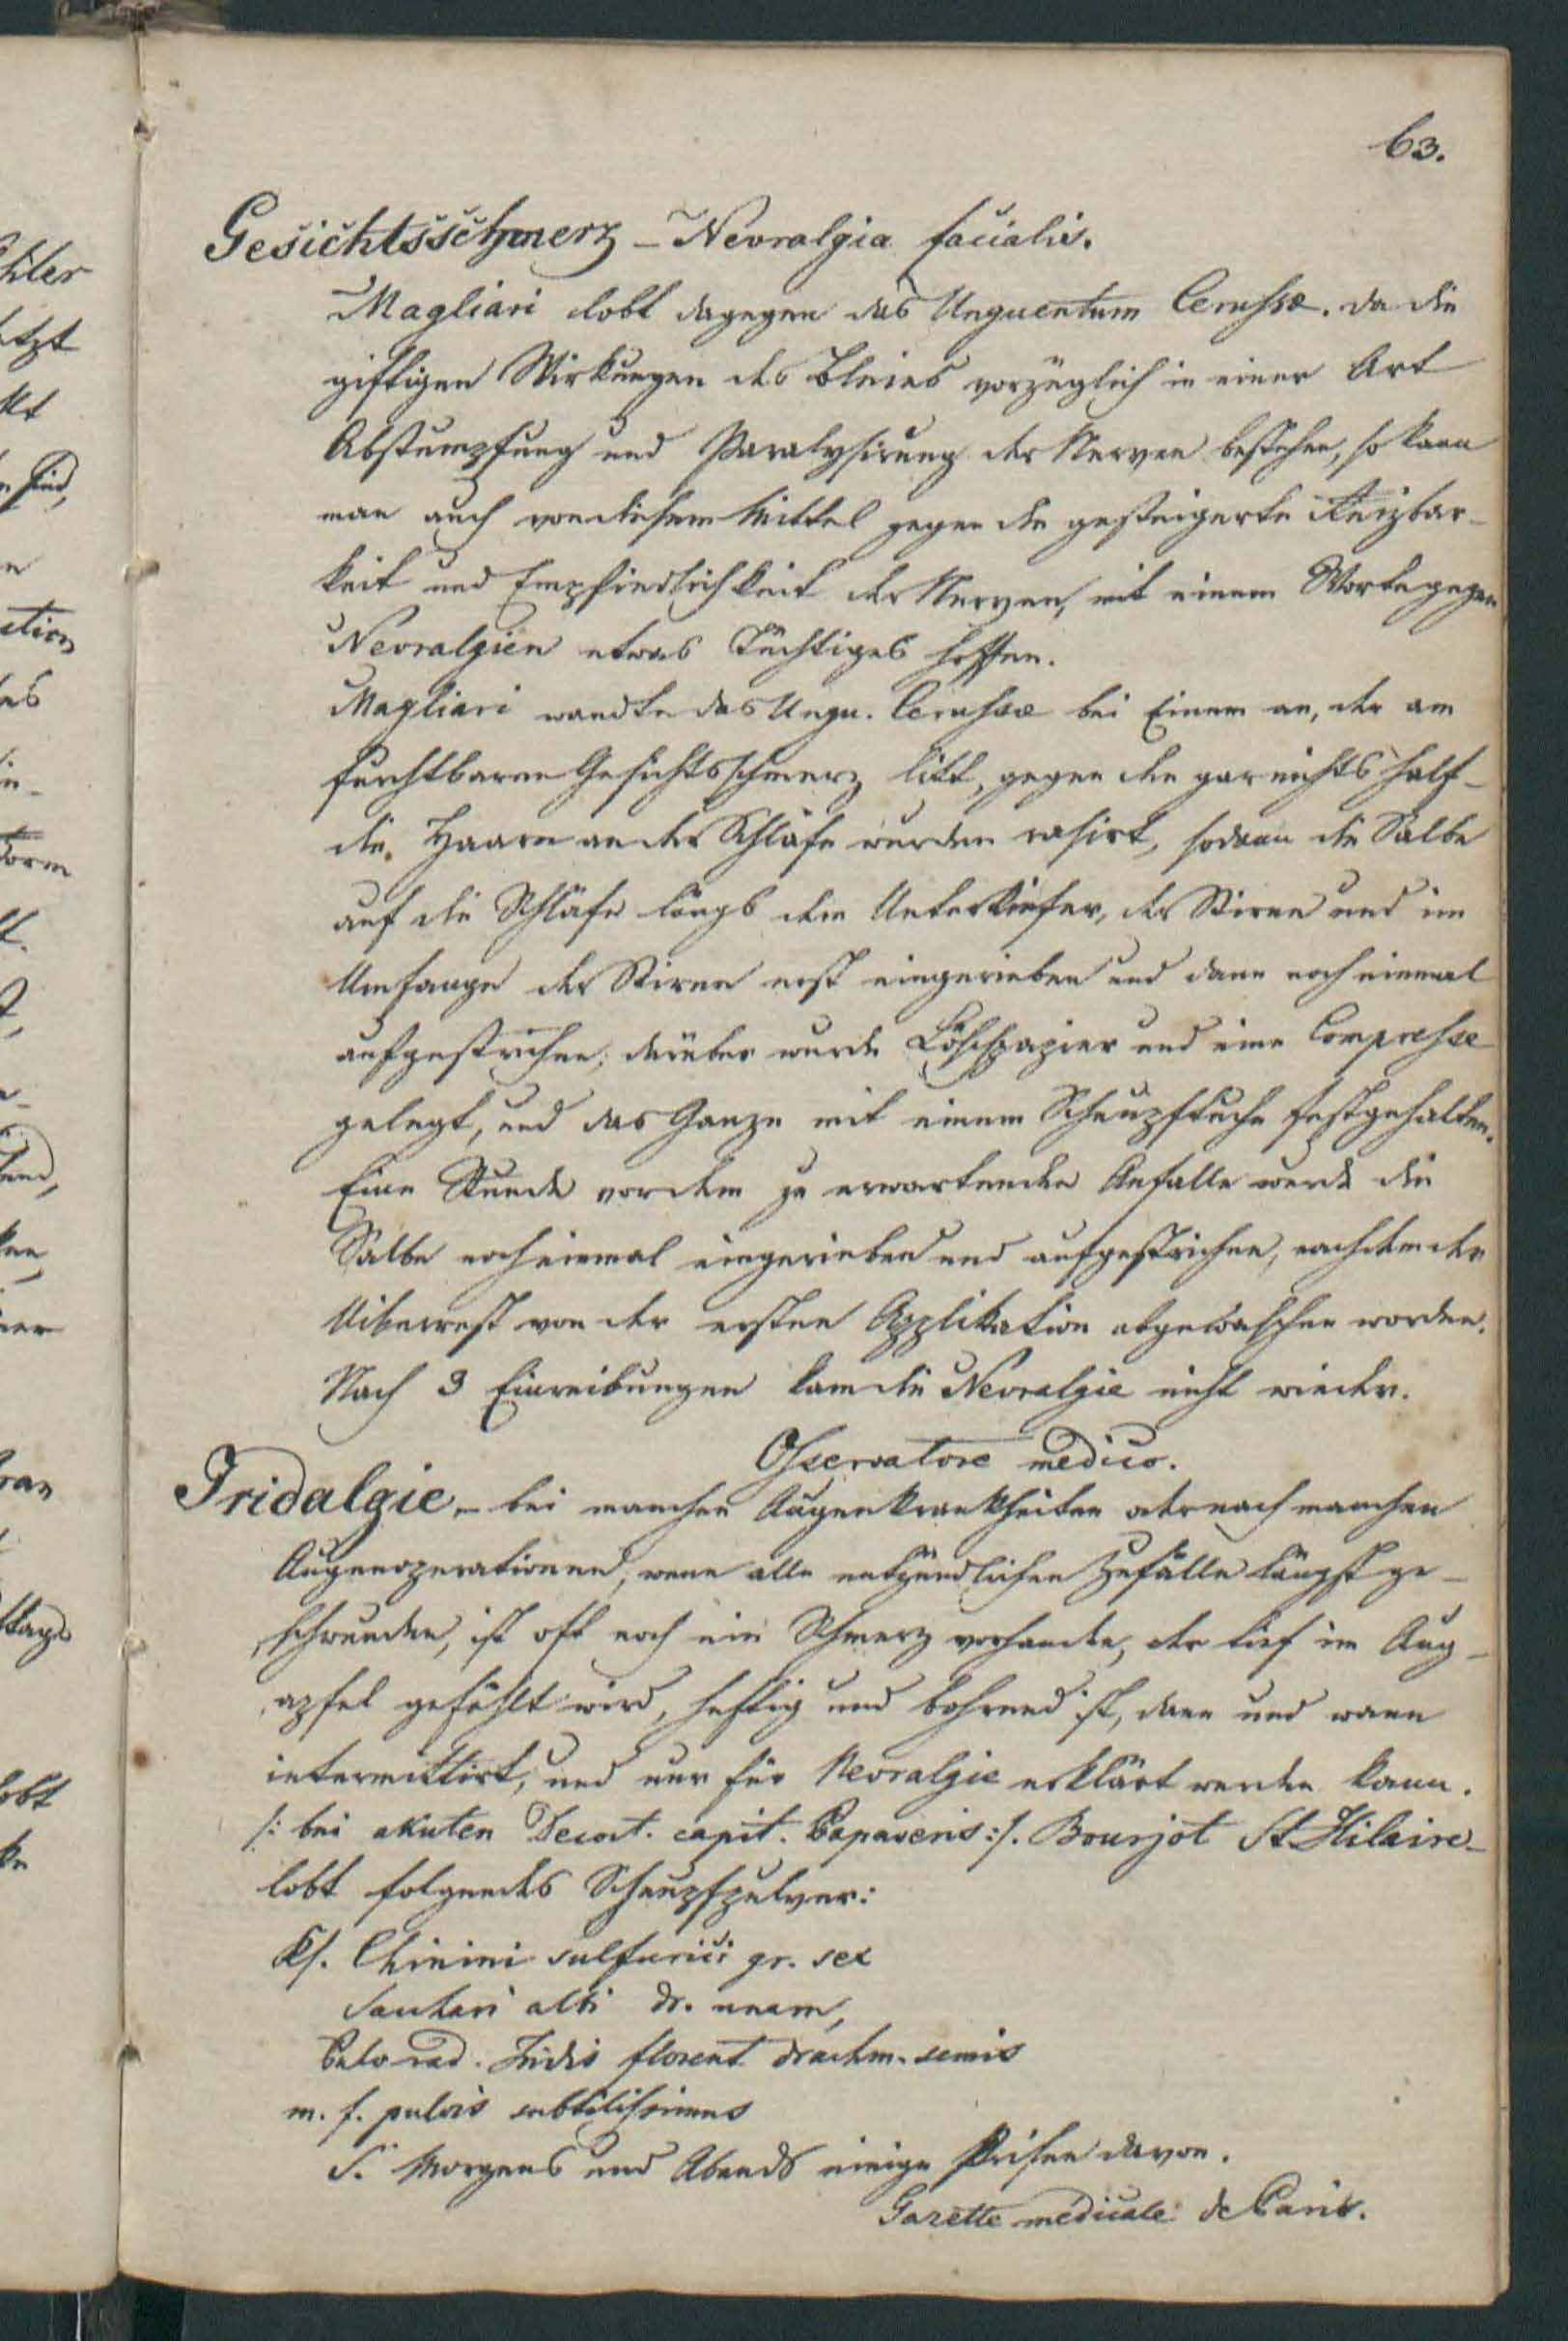 63.
Gesichtsschmerz – Nevralgia facialis.
Magliari lobt dagegen das Unguentum Cerussæ. da die
giftigen Wirkungen des Bleies vorzüglich in einer Art
Abstumpfung und Paralysirung der Nerven bestehen, so kann
man auch von diesem Mittel gegen die gesteigerte Reizbar-
keit und Empfindlichkeit der Nerven, mit einem Worte gegen
Nevralgien etwas Tüchtiges hoffen.
Magliari wandte das Ungu. Cerussæ bei Einem an, der am
furchtbaren Gesichtsschmerz litt, gegen den gar nichts half –
die Haare an der Schläfe wurden rasirt, sodann die Salbe
auf die Schläfe längs dem Unterkiefer, der Stirne und im
Umfange der Stirne erst eingerieben und dann noch einmal
aufgestrichen; darüber wurde Löschpapier und eine Compresse
gelegt, und das Ganze mit einem Schnupftuche festgehalten.
Eine Stunde vor dem zu erwartenden Anfalle wurde die
Salbe noch einmal eingerieben und aufgestrichen, nachdem der
Uiberrest von der ersten Applikation abgewaschen worden.
Nach 3 Einreibungen kam die Nevralgie nicht wieder.
Osservatore medico.
Iridalgie – bei manchen Augenkrankheiten oder nach manchen
Augenoperationen, wenn alle entzündlichen Zufälle längst ge-
schwunden, ist oft noch ein Schmerz vorhanden, der tief im Aug-
apfel gefühlt wird, heftig und bohrend ist, dann und wann
intermittirt, und nur für Nevralgie erklärt werden kann.
/: bei akuten Decoct. capit. Papaveris :/. Bourjot St. Hilaire
lobt folgendes Schnupfpulver:
Rf. Chinini sulfurici gr. sex
Sachari albi dr. unam,
Pulv rad. Iridis florent drachm. semis
m. f. pulvis subtilissimus
S. Morgens und Abends einige Prisen davon.
Gazette médicale de Paris.